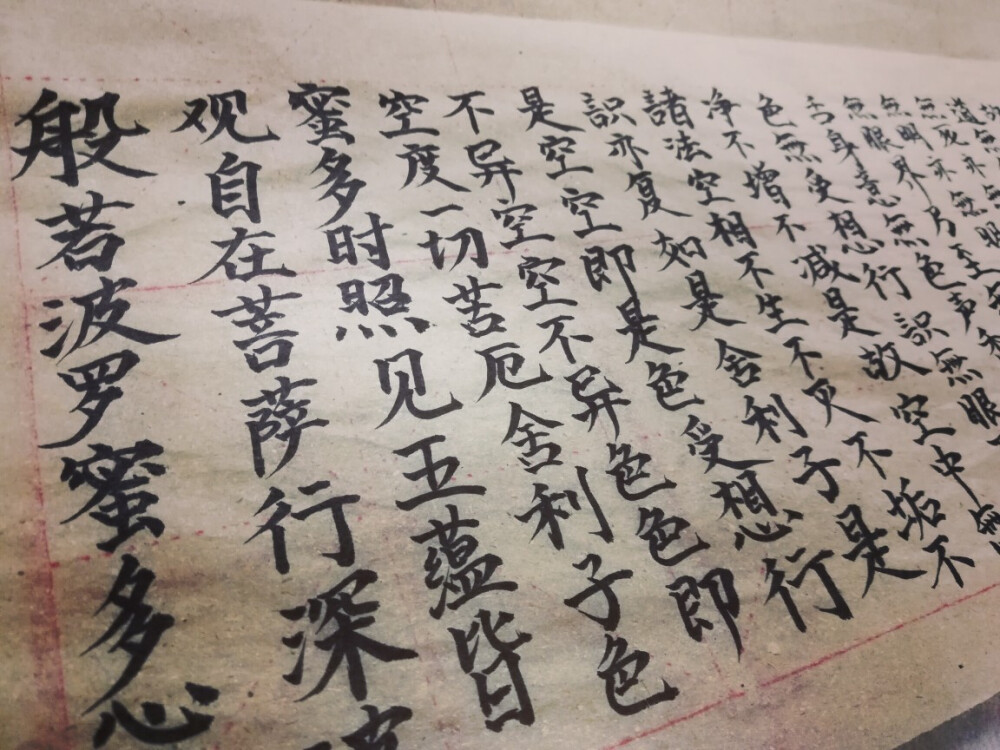 般若波罗蜜多心
观自在菩萨行深
蜜多时照见五蕴皆
空度一切苦厄舍利子色
不异空空不异色色即
是空空即是色受想行
識亦复如是舍利子是
諸法空相不生不灭不垢不
净不增不减是故空中無
色無受想行識無眼
舌身意無色声
無眼界乃至
無明亦無
無死亦
道無